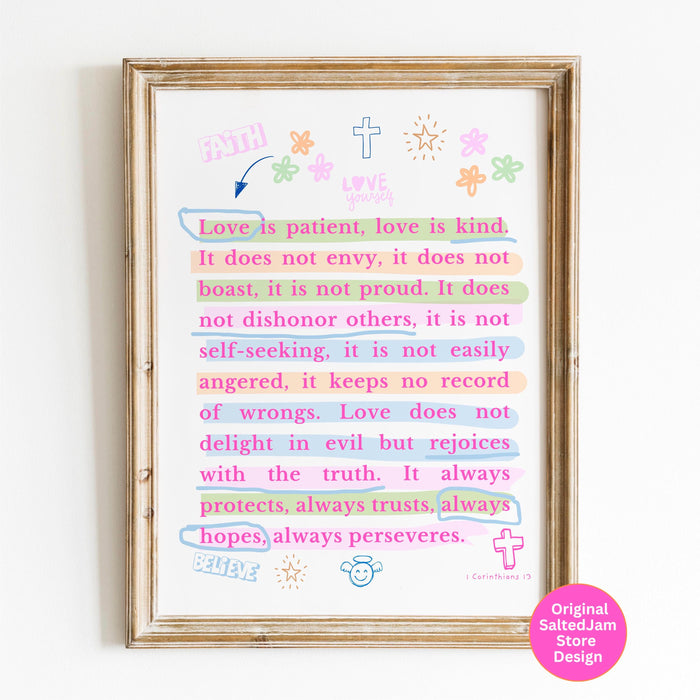 FAITH
LOVE
yourself
Love is patient, love is kind.
It does not envy, it does not
boast, it is not proud. It does
not dishonor others, it is not
self-seeking, it is not easily
angered, it keeps no record
of wrongs. Love does not
delight in evil but rejoices
with the truth. It always
protects, always trusts, always
hopes, always perseveres.
BELIEVE
1 Corinthians 13
Original
SaltedJam
Store
Design